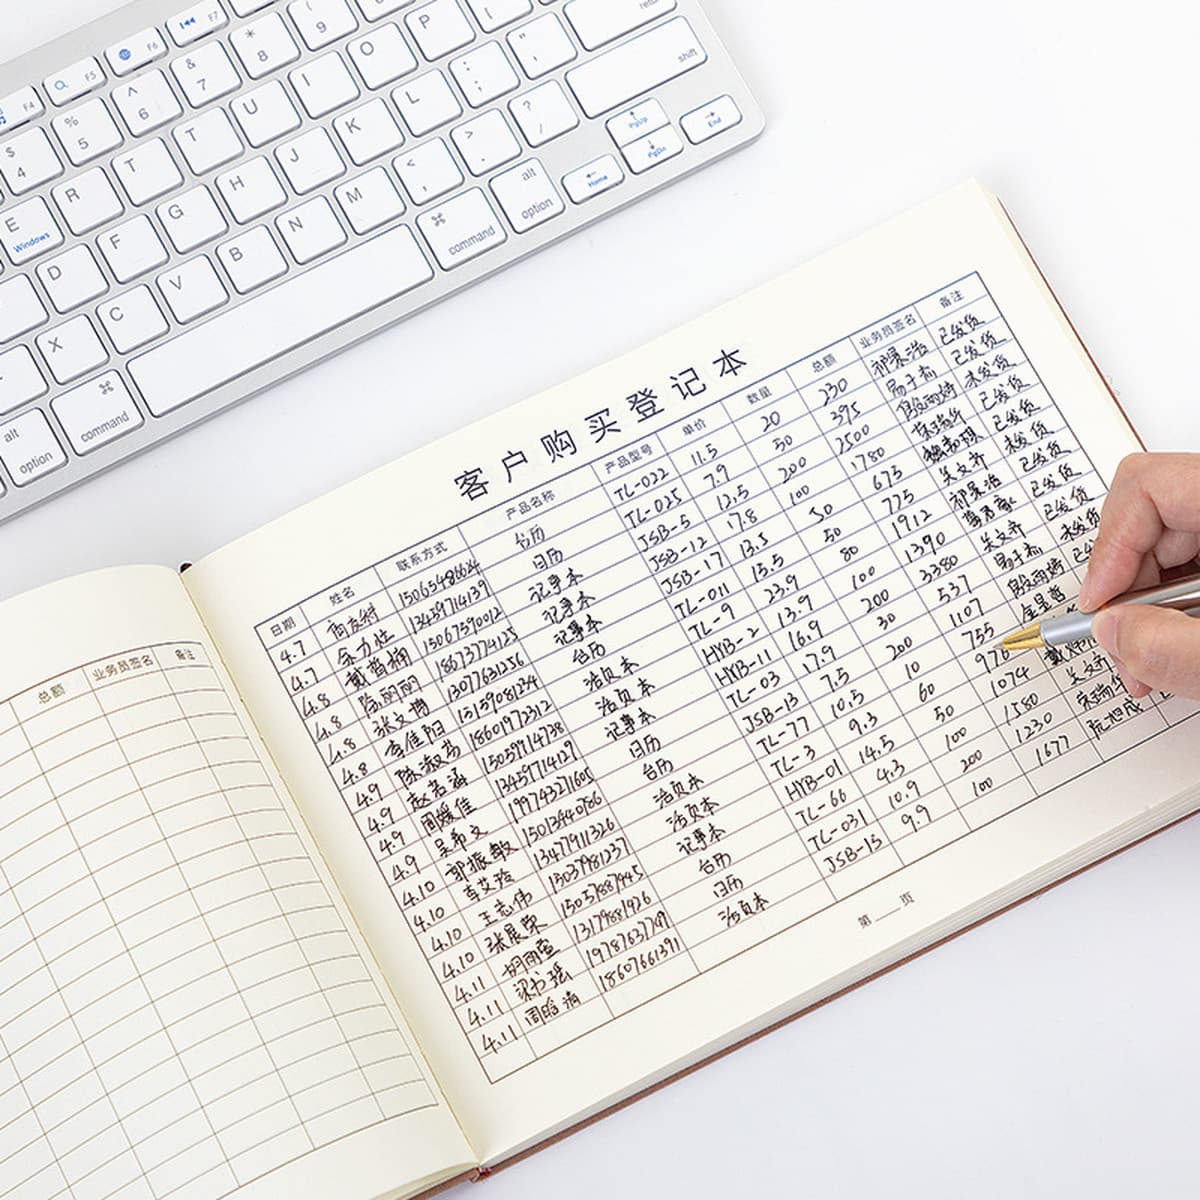 客户购买登记本
日期 姓名 联系方式 产品名称 产品型号 单价 数量 总额 业务员签名 备注
4.7 商友树 15065486624 台历 TL-022 11.5 20 230 祁景浩 已发货
4.7 余力性 13459714139 日历 TL-025 7.9 50 395 易子杰 已发货
4.8 戴尊楠 15067590012 记事本 JSB-5 12.5 200 2500 殷丽婷 未发货
4.8 陈丽丽 18673774125 记事本 JSB-12 17.8 100 1780 宋瑞华 已发货
4.8 张文博 13077631256 记事本 JSB-17 13.5 50 675 魏嘉琪 已发货
4.8 李佳阳 13159081234 台历 TL-011 15.5 50 775 关文齐 未发货
4.9 陈淑芬 18601972312 活页本 TL-9 23.9 80 1912 祁景浩 已发货
4.9 赵若涵 15059914738 活页本 HYB-2 13.9 100 1390 葛君豪 已发货
4.9 周媛佳 13459714129 记事本 HYB-11 16.9 200 3380 关文齐 已发货
4.9 吴希文 日历 TL-03 17.9 30 537 易子杰 未发货
4.10 郭振敏 15013440786 台历 JSB-13 7.5 200 1107 殷丽婷 已
4.10 李艾玲 13477911326 活页本 TL-77 10.5 10 755
4.10 王志伟 15037981237 活页本 TL-3 9.3 60 976
4.10 张晨荣 15057887945 记事本 HYB-01 14.5 50 1074 戴炜
4.11 胡丽莹 13179881926 台历 TL-66 4.3 100 1580 关文齐
4.11 梁书瑶 19787637749 日历 TL-031 10.9 200 1230 宋瑞华
4.11 周晗清 18607661391 活页本 JSB-15 9.9 100 1677 阮旭成
第 页
总额 业务员签名 备注
F4 F5 F6 F7
$ 4 % 5 ^ 6 & 7 * 8 ( 9
E Windows R T T U I O P return
D F G H J K L : ; " ' shift
X C V B N M < , > . ? /
alt option ⌘ command ⌘ command alt option Home PgUp PgDn End